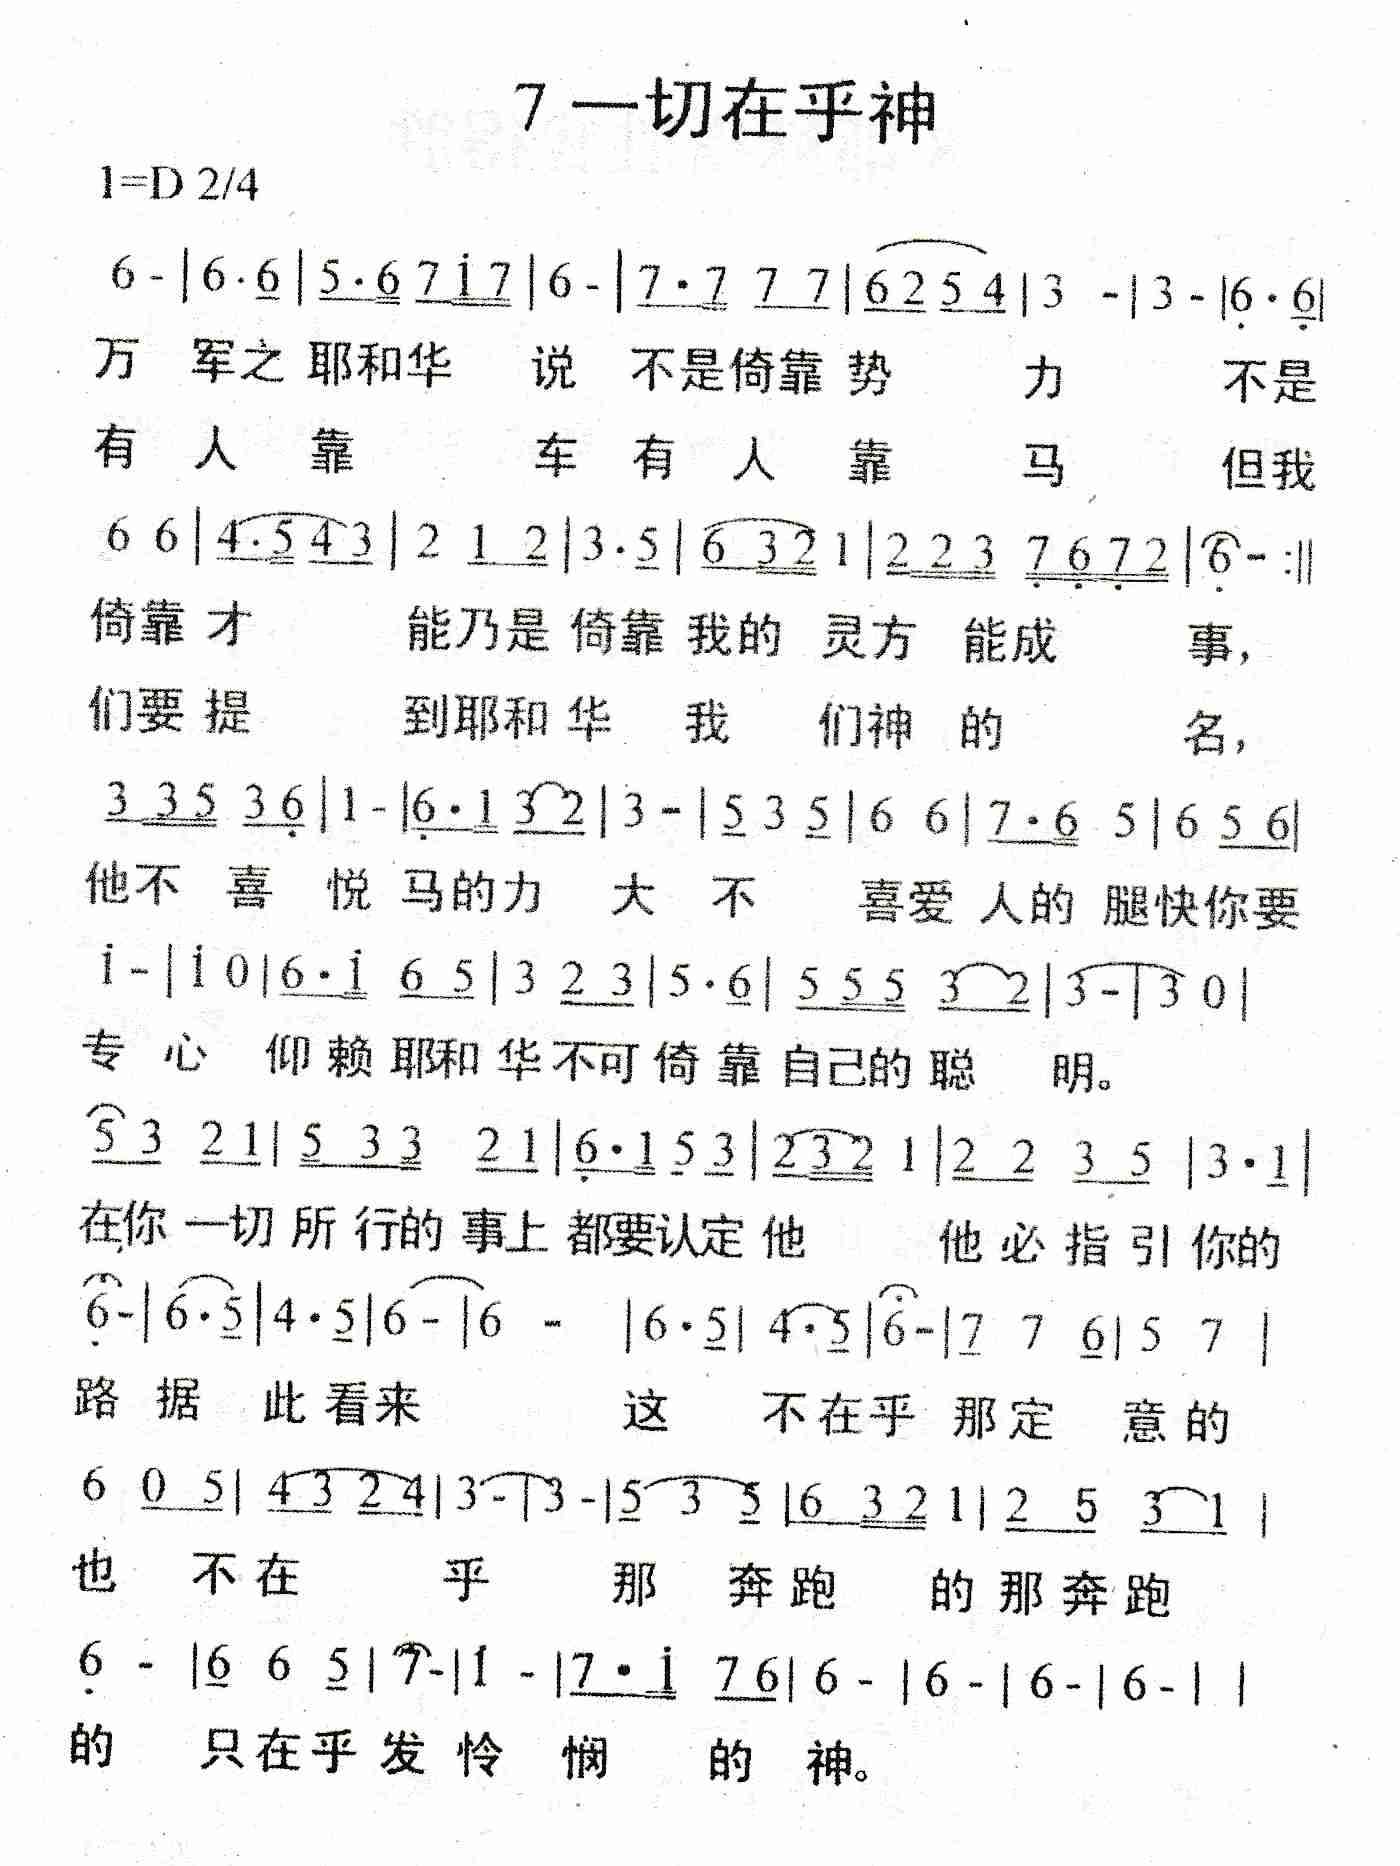 7 一切在乎神
1=D 2/4
6 - | 6 · 6 | 5 · 6 7 i 7 | 6 - | 7 · 7 7 7 | 6 2 5 4 | 3 - | 3 - | 6 · 6 |
万 军之 耶和华 说 不是倚靠 势 力 不是
有 人 靠 车 有 人 靠 马 但我
6 6 | 4 · 5 4 3 | 2 1 2 | 3 · 5 | 6 3 2 1 | 2 2 3 7 6 7 2 | 6 - :||
倚靠 才 能乃是 倚靠 我的 灵方 能成 事,
们要 提 到耶和 华 我 们神 的 名,
3 3 5 3 6 | 1 - | 6 · 1 3 2 | 3 - | 5 3 5 | 6 6 | 7 · 6 5 | 6 5 6 |
他不 喜 悦 马的力 大 不 喜爱 人的 腿快你要
i - | i 0 | 6 · i 6 5 | 3 2 3 | 5 · 6 | 5 5 5 3 2 | 3 - | 3 0 |
专 心 仰 赖 耶和 华 不可 倚 靠 自己的 聪 明。
5 3 2 1 | 5 3 3 2 1 | 6 · 1 5 3 | 2 3 2 1 | 2 2 3 5 | 3 · 1 |
在你 一切 所 行的 事上 都要认定 他 他 必 指 引 你的
6 - | 6 · 5 | 4 · 5 | 6 - | 6 - | 6 · 5 | 4 · 5 | 6 - | 7 7 6 | 5 7 |
路 据 此 看来 这 不在乎 那定 意的
6 0 5 | 4 3 2 4 | 3 - | 3 - | 5 3 5 | 6 3 2 1 | 2 5 3 1 |
也 不 在 乎 那 奔跑 的 那 奔 跑
6 - | 6 6 5 | 7 - | 1 - | 7 · i 7 6 | 6 - | 6 - | 6 - | 6 - | |
的 只在乎 发 怜 悯 的 神。